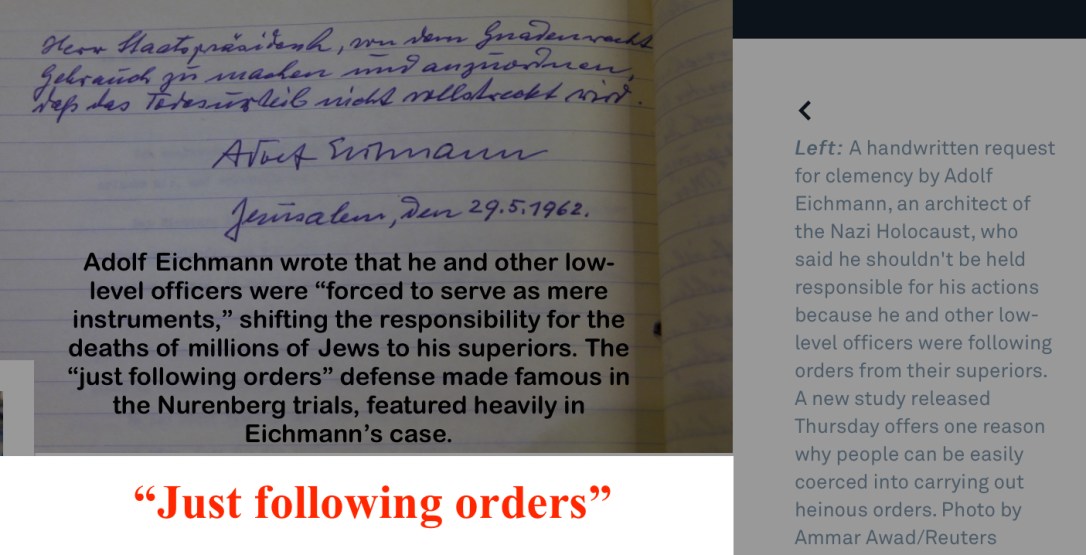 Herr Staatspräsident, von dem Gnadenrecht
Gebrauch zu machen und anzuordnen,
daß das Todesurteil nicht vollstreckt wird.
Adolf Eichmann
Jerusalem, den 29.5.1962.
Adolf Eichmann wrote that he and other low-
level officers were “forced to serve as mere
instruments,” shifting the responsibility for the
deaths of millions of Jews to his superiors. The
“just following orders” defense made famous in
the Nurenberg trials, featured heavily in
Eichmann’s case.
“Just following orders”
Left: A handwritten request
for clemency by Adolf
Eichmann, an architect of
the Nazi Holocaust, who
said he shouldn't be held
responsible for his actions
because he and other low-
level officers were following
orders from their superiors.
A new study released
Thursday offers one reason
why people can be easily
coerced into carrying out
heinous orders. Photo by
Ammar Awad/Reuters